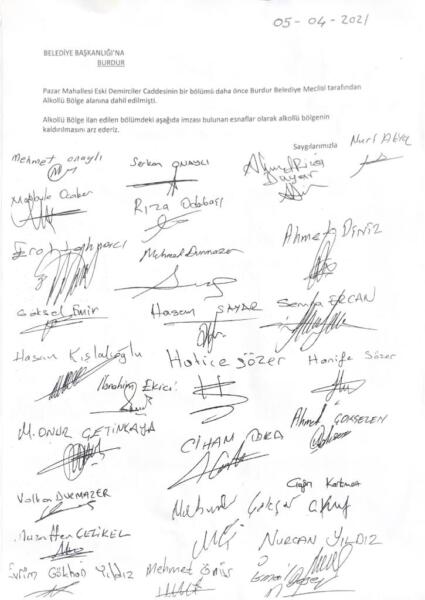 05-04-2021
BELEDİYE BAŞKANLIĞI'NA
BURDUR
Pazar Mahallesi Eski Demirciler Caddesinin bir bölümü daha önce Burdur Belediye Meclisi tarafından
Alkollü Bölge alanına dahil edilmişti.
Alkollü Bölge ilan edilen bölümdeki aşağıda imzası bulunan esnaflar olarak alkollü bölgenin
kaldırılmasını arz ederiz.
Saygılarımızla
Mehmet Onaylı
Serkan ONAYLI
Ahmet Rıza
Nuri
Rıza Odabaşı
Erol
Mehmed Durmazer
Ahmet DENİZ
Göksel Emir
Hasan SAYAR
Semra ERCAN
Hasan Kışlalıoğlu
Hatice Sözer
Hanife Sözer
İbrahim Ekici
M. ONUR ÇETİNKAYA
CİHAN
Ahmet GÖKSEZEN
Volkan DURMAZER
Muzaffer
NURCAN YILDIZ
Evrim Gökhan Yıldız
Mehmet